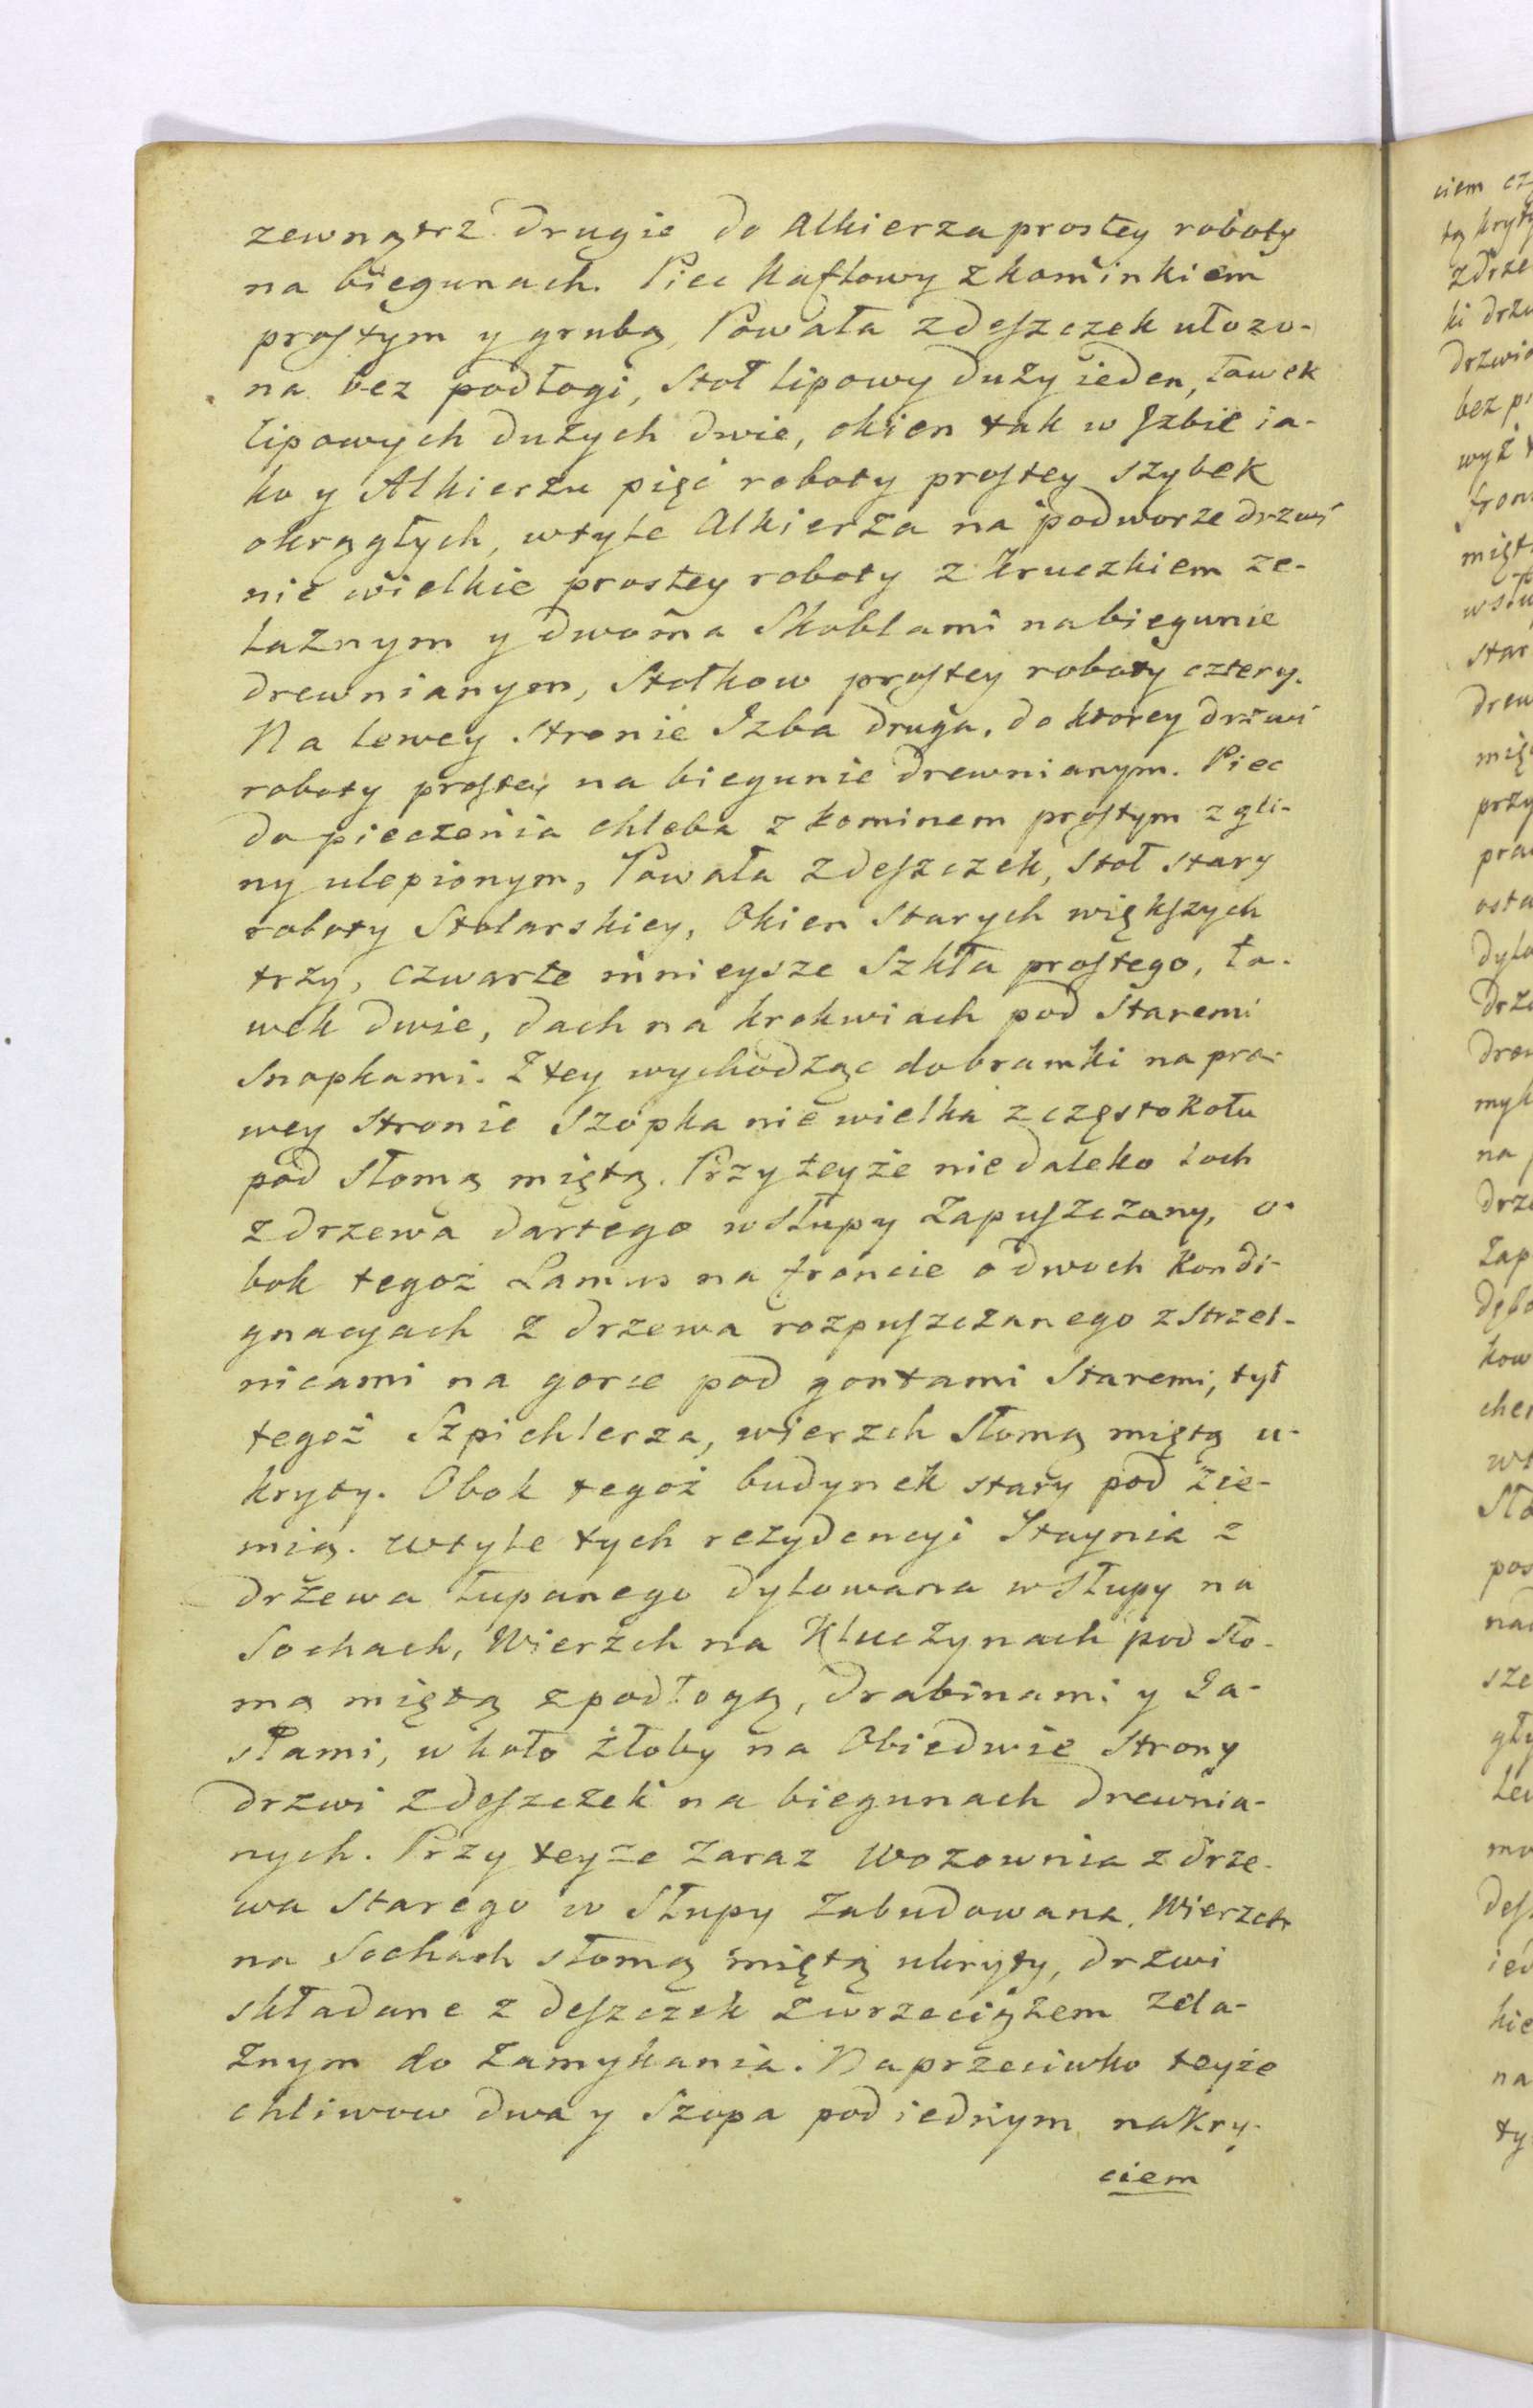 zewnątrz drugie do Alkierza prostey roboty
na biegunach. Piec Kaflowy z kominkiem
prostym y grubą, Powała z deszczek ułozo-
na bez podłogi, Stoł lipowy duży ieden, ławek
lipowych dużych dwie, okien tak w Izbie ia-
ko y Alkierzu pięć roboty prostey szybek
okrągłych, wtyle Alkierza na podworze drzwi
nie wielkie prostey roboty z kruczkiem że-
laznym y dwoma Skoblami na biegunie
drewnianym, Stołkow prostey roboty cztery.
Na lewey stronie Izba druga, do ktorey drzwi
roboty prostey na biegunie drewnianym. Piec
do pieczenia chleba z kominem prostym z gli-
ny ulepionym, Powała z deszczek, Stoł stary
roboty Stolarskiey, Okien Starych większych
trzy, czwarte mnieysze Szkła prostego, ła-
wek dwie, dach na krokwiach pod Staremi
Snopkami. Z tey wychodząc do bramki na pra-
wey stronie Szopka nie wielka z częstokołu
pod Słomą miętą. Przy teyże niedaleko loch
z drzewa dartego w Słupy zapuszczany, o-
bok tegoż Lamus na froncie o dwoch Kondi-
gnacyach z drzewa rozpuszczanego z Strzel-
nicami na gorze pod gontami Staremi, tył
tegoż Szpichlerza, wierzch Słomą miętą u-
kryty. Obok tegoż budynek stary pod zie-
mią. wtyle tych rezydencyi Staynia z
drzewa łupanego dylowana w Słupy na
Sochach, Wierzch na Kluczynach pod Sło-
mą miętą z podłogą, drabinami y Za-
słami, w koło żłoby na Obiedwie Strony
drzwi z deszczek na biegunach drewnia-
nych. Przy teyże zaraz Wozownia z drze-
wa Starego w Słupy zabudowana, Wierzch
na Sochach słomą miętą ukryty, drzwi
składane z deszczek z wrzeciążem żela-
znym do zamykania. Naprzeciwko teyże
chliwow dwa y Szopa pod iednym nakry-
ciem